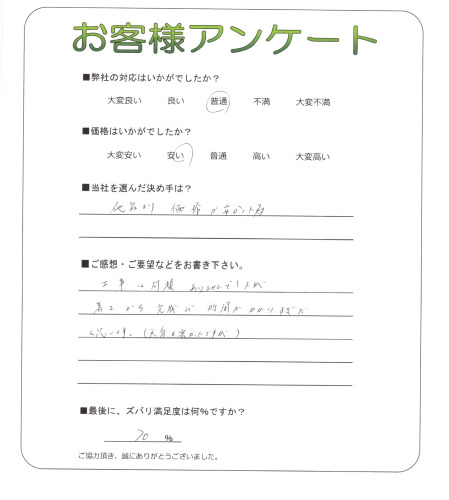 お客様アンケート
■弊社の対応はいかがでしたか？
大変良い 良い 普通 不満 大変不満
■価格はいかがでしたか？
大変安い 安い 普通 高い 大変高い
■当社を選んだ決め手は？
他社より 価格が安かった為
■ご感想・ご要望などをお書き下さい。
工事は問題ありませんでしたが
着工から完成まで時間がかかりすぎだ
と思います。(天気も悪かったですが)
■最後に、ズバリ満足度は何%ですか？
70 %
ご協力頂き、誠にありがとうございました。